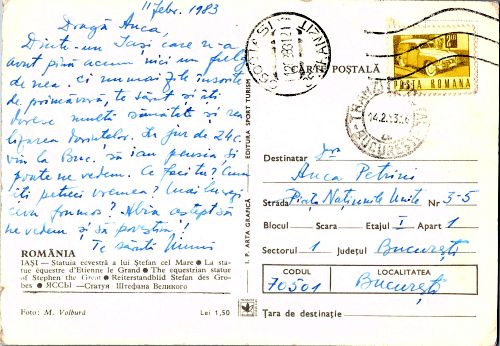 11 febr. 1983
Dragă Anca,
Dintr-un Iași care n-a
avut pînă acum nici un fulg
de nea. Ci numai zile însorite
de primăvară, te sărut și îți
doresc multă sănătate și rea
lizarea dorințelor. În jur de 24 c.
vin la Buc. să iau pensia și
poate ne vedem. Ce faci tu? Cum
îți petreci vremea? Mai lucrezi
ceva frumos? Abia aștept să
ne vedem și să povestim!
Te sărută
ROMÂNIA
IAȘI — Statuia ecvestră a lui Ștefan cel Mare ● La sta-
tue équestre d'Etienne le Grand ● The equestrian statue
of Stephen the Great ● Reiterstandbild Stefan des Gro-
bes ● ЯССЫ —Статуя Штефана Великого
Foto: M. Volbură
Lei 1,50
I. P. ARTA GRAFICĂ
EDITURA SPORT TURISM
CARTE POȘTALĂ
POȘTA ROMÂNĂ
14.2.83
BUCUREȘTI
Destinatar Dra
Anca Petrini
Strada Piața Națiunile Unite Nr 3-5
Blocul Scara Etajul I Apart 1
Sectorul 1 Județul București
CODUL
70501
LOCALITATEA
București
Țara de destinație